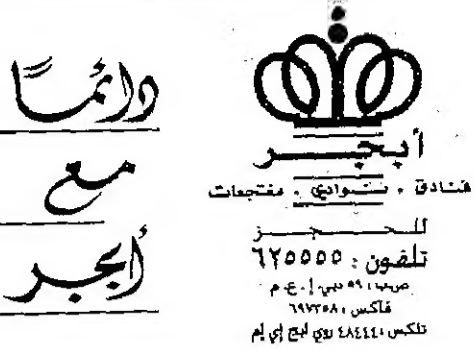 دائمًا
مع
أبجر
أبجر
فنادق . نوادي . منتجعات
للحجز
تلفون : ٦٢٥٥٥٥
ص.ب ، ٥٩ دبي إ . ع . م
فاكس ، ٦٩٧٣٥٨
تلكس ، ٤٨٤٤٤ روي ايج إي إم